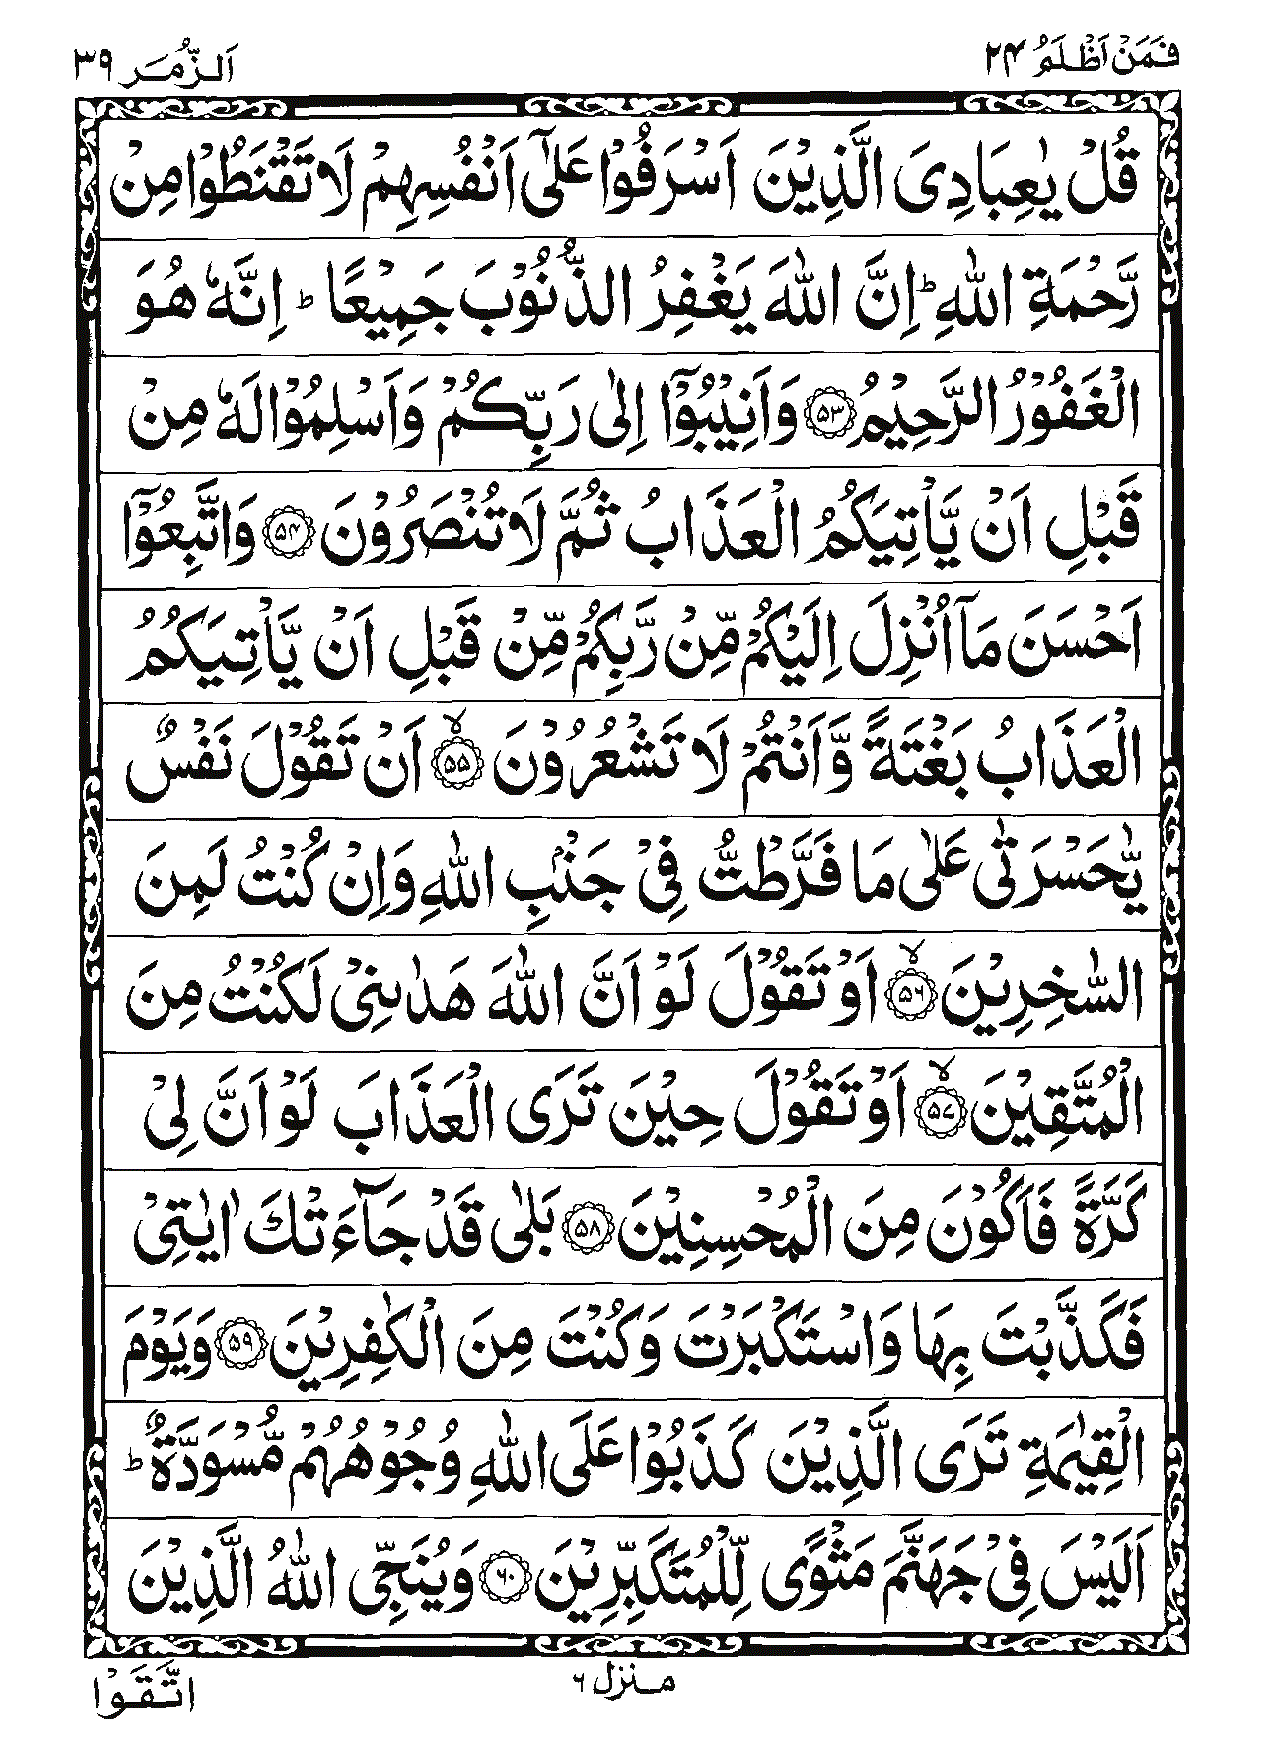 فَمَنْ اَظْلَمُ ٢٤
اَلزُّمَر ٣٩
قُلْ يٰعِبَادِىَ الَّذِيْنَ اَسْرَفُوْا عَلٰٓى اَنْفُسِهِمْ لَا تَقْنَطُوْا مِنْ
رَّحْمَةِ اللّٰهِ ؕ اِنَّ اللّٰهَ يَغْفِرُ الذُّنُوْبَ جَمِيْعًا ؕ اِنَّهٗ هُوَ
الْغَفُوْرُ الرَّحِيْمُ ۝۵۳ وَاَنِيْبُوْٓا اِلٰى رَبِّكُمْ وَاَسْلِمُوْا لَهٗ مِنْ
قَبْلِ اَنْ يَّاْتِيَكُمُ الْعَذَابُ ثُمَّ لَا تُنْصَرُوْنَ ۝۵۴ وَاتَّبِعُوْٓا
اَحْسَنَ مَآ اُنْزِلَ اِلَيْكُمْ مِّنْ رَّبِّكُمْ مِّنْ قَبْلِ اَنْ يَّاْتِيَكُمُ
الْعَذَابُ بَغْتَةً وَّاَنْتُمْ لَا تَشْعُرُوْنَ ۝۵۵ۙ اَنْ تَقُوْلَ نَفْسٌ
يّٰحَسْرَتٰى عَلٰى مَا فَرَّطْتُّ فِىْ جَنْۢبِ اللّٰهِ وَاِنْ كُنْتُ لَمِنَ
السّٰخِرِيْنَ ۝۵۶ۙ اَوْ تَقُوْلَ لَوْ اَنَّ اللّٰهَ هَدٰىنِىْ لَكُنْتُ مِنَ
الْمُتَّقِيْنَ ۝۵۷ۙ اَوْ تَقُوْلَ حِيْنَ تَرَى الْعَذَابَ لَوْ اَنَّ لِىْ
كَرَّةً فَاَكُوْنَ مِنَ الْمُحْسِنِيْنَ ۝۵۸ بَلٰى قَدْ جَآءَتْكَ اٰيٰتِىْ
فَكَذَّبْتَ بِهَا وَاسْتَكْبَرْتَ وَكُنْتَ مِنَ الْكٰفِرِيْنَ ۝۵۹ وَيَوْمَ
الْقِيٰمَةِ تَرَى الَّذِيْنَ كَذَبُوْا عَلَى اللّٰهِ وُجُوْهُهُمْ مُّسْوَدَّةٌ ؕ
اَلَيْسَ فِىْ جَهَنَّمَ مَثْوًى لِّلْمُتَكَبِّرِيْنَ ۝۶۰ وَيُنَجِّى اللّٰهُ الَّذِيْنَ
منزل ٦
اتَّقَوْا